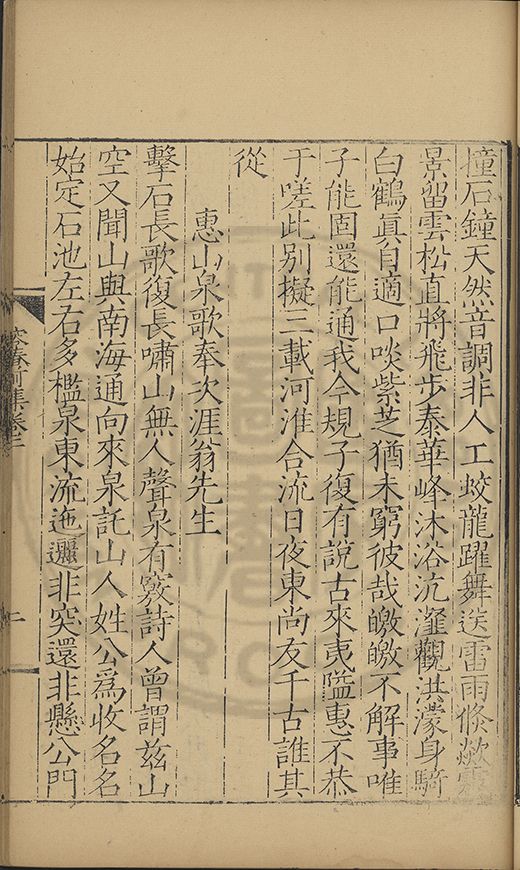 撞石鐘天然音調非人工蛟龍躍舞送雷雨倐歘雲
景留雲松直將飛步泰華峰沐浴沆瀣觀洪濛身騎
白鶴眞自適口啖紫芝猶未窮彼哉皦皦不解事唯
子能固還能通我今規子復有說古來夷隘惠不恭
于嗟此別擬三載河淮合流日夜東尚友千古誰其
從
惠山泉歌奉次涯翁先生
擊石長歌復長嘯山無人聲泉有竅詩人曾謂茲山
空又聞山與南海通向來泉託山人姓公爲收名名
始定石池左右多檻泉東流迤邐非突還非懸公門
容春前集卷三
二